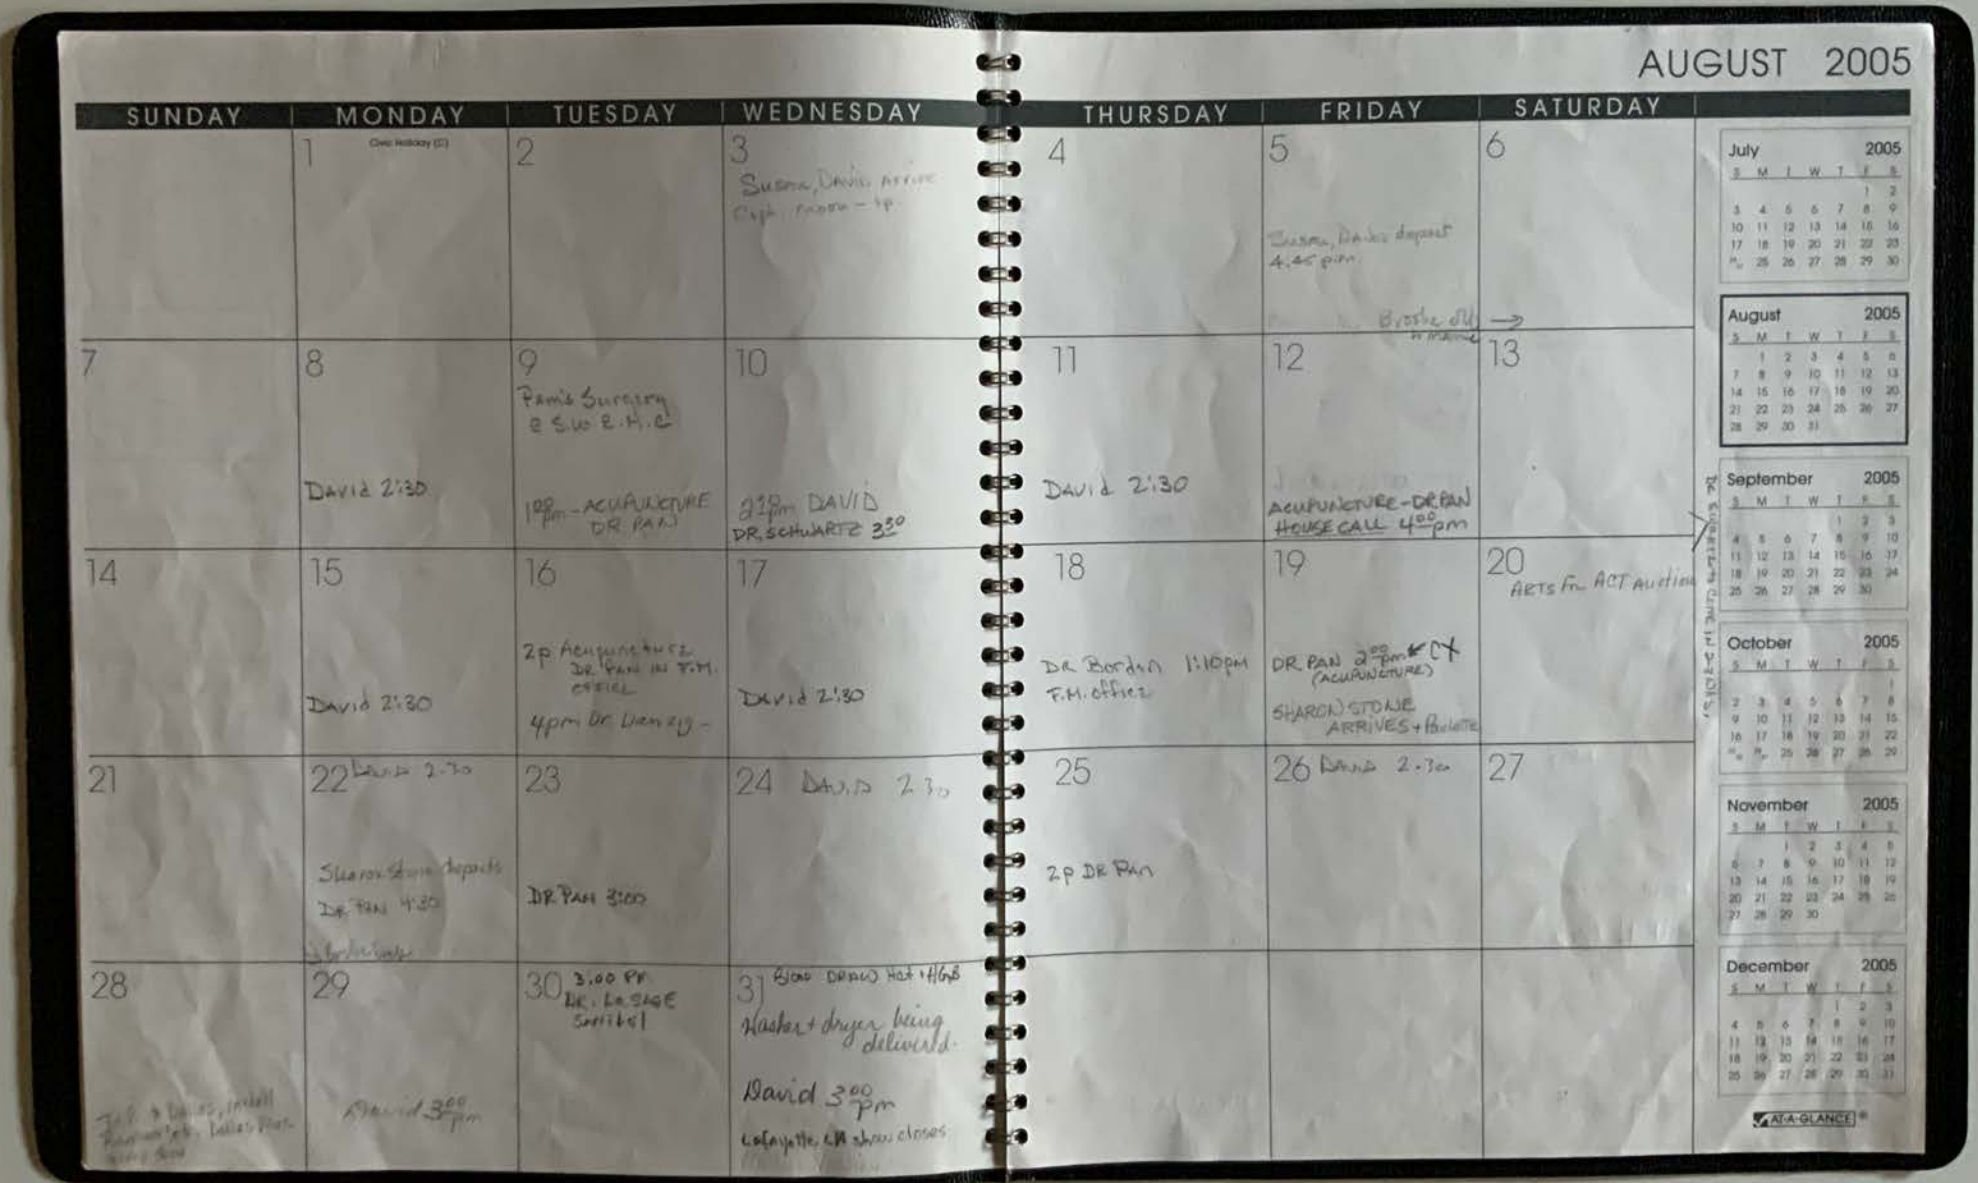 AUGUST 2005
SUNDAY MONDAY TUESDAY WEDNESDAY THURSDAY FRIDAY SATURDAY
1 Civic Holiday (C)
2
3
Susan, David arrive
noon - 1p
4
5
Susan, David depart
4.45 p.m.
Brooke off →
6
7
8
David 2:30
9
Pam's Surgery
@ S.W.
1:00 pm - ACUPUNCTURE
DR. PAN
10
pm DAVID
DR. SCHWARTZ 3:30
11
David 2:30
12
ACUPUNCTURE - DR PAN
HOUSE CALL 4:00 pm
13
14
15
David 2:30
16
2p Acupuncture
DR PAN IN F.M.
OFFICE
4pm Dr. Danzig -
17
David 2:30
18
DR Bordon 1:10pm
F.M. office
19
DR PAN 2:00 pm
(ACUPUNCTURE)
SHARON STONE
ARRIVES +
20
ARTS for ACT Auction
21
22 DAVID 2.30
Sharon Stone departs
DR PAN 4:30
23
DR PAN 3:00
24 DAVID 2 30
25
2p DR PAN
26 DAVID 2.30
27
28
install
29
David 3:00 pm
30 3.00 PM
DR. LESAGE
Sanibel
31 Blood DRAW Hct + HGB
Washer + dryer being
delivered.
David 3:00 pm
Lafayette, LA show closes
COME IN
July 2005
S M T W T F S
1 2
3 4 5 6 7 8 9
10 11 12 13 14 15 16
17 18 19 20 21 22 23
25 26 27 28 29 30
August 2005
S M T W T F S
1 2 3 4 5 6
7 8 9 10 11 12 13
14 15 16 17 18 19 20
21 22 23 24 25 26 27
28 29 30 31
September 2005
S M T W T F S
1 2 3
4 5 6 7 8 9 10
11 12 13 14 15 16 17
18 19 20 21 22 23 24
25 26 27 28 29 30
October 2005
S M T W T F S
1
2 3 4 5 6 7 8
9 10 11 12 13 14 15
16 17 18 19 20 21 22
25 26 27 28 29
November 2005
S M T W T F S
1 2 3 4 5
6 7 8 9 10 11 12
13 14 15 16 17 18 19
20 21 22 23 24 25 26
27 28 29 30
December 2005
S M T W T F S
1 2 3
4 5 6 7 8 9 10
11 12 13 14 15 16 17
18 19 20 21 22 23 24
25 26 27 28 29 30 31
AT-A-GLANCE ®